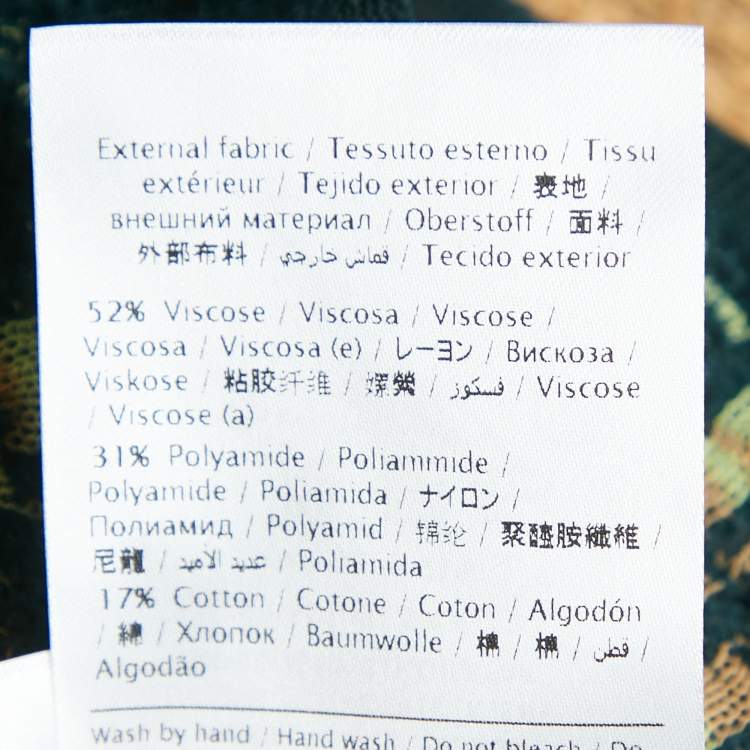 External fabric / Tessuto esterno / Tissu
extérieur / Tejido exterior / 表地 /
внешний материал / Oberstoff / 面料 /
外部布料 / قماش خارجي / Tecido exterior
52% Viscose / Viscosa / Viscose /
Viscosa / Viscosa (e) / レーヨン / Вискоза /
Viskose / 粘胶纤维 / 嫘縈 / فسكوز / Viscose
/ Viscose (a)
31% Polyamide / Poliammide /
Polyamide / Poliamida / ナイロン /
Полиамид / Polyamid / 锦纶 / 聚醯胺纖維 /
尼龍 / عديد الأميد / Poliamida
17% Cotton / Cotone / Coton / Algodón
/ 綿 / Хлопок / Baumwolle / 棉 / 棉 / قطن /
Algodão
wash by hand / Hand wash / Do not bleach / Do